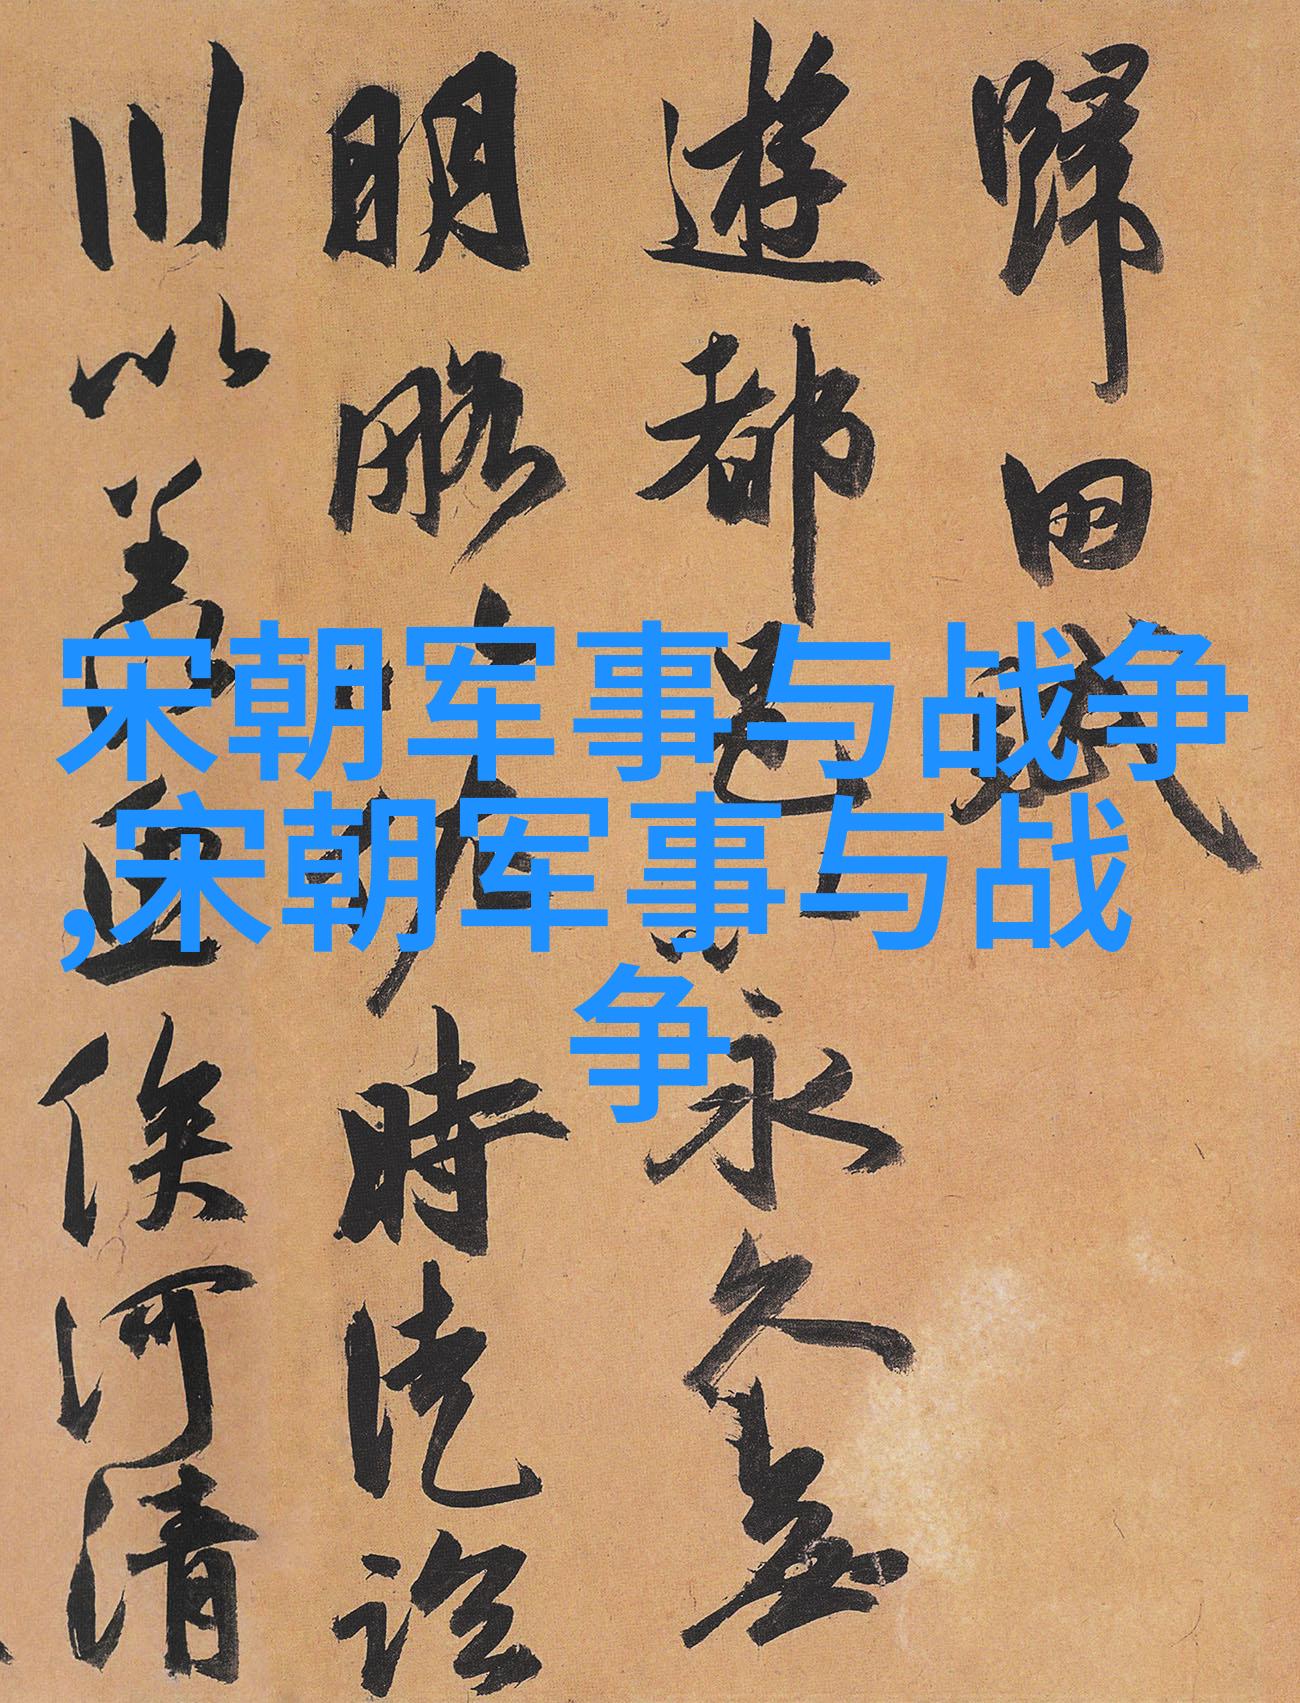 歸田賦
遊都邑以永久無
明略以佐時徒臨
川以羨魚俟河清
宋朝军事与战争
,宋朝军事与战
争